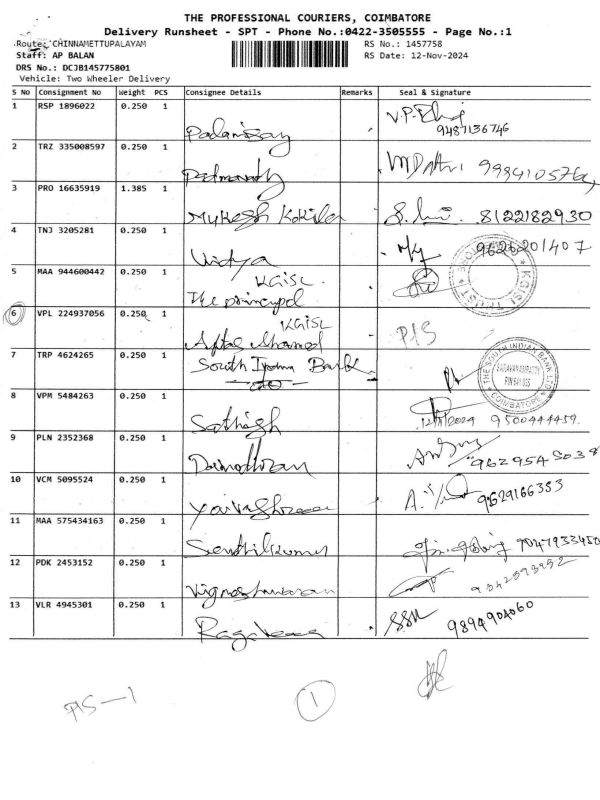 THE PROFESSIONAL COURIERS, COIMBATORE
Delivery Runsheet - SPT - Phone No.:0422-3505555 - Page No.:1
Route: CHINNAMETTUPALAYAM RS No.: 1457758
Staff: AP BALAN RS Date: 12-Nov-2024
DRS No.: DCJB145775801
Vehicle: Two Wheeler Delivery
S No Consignment No Weight PCS Consignee Details Remarks Seal & Signature
1 RSP 1896022 0.250 1
9487136746
2 TRZ 335008597 0.250 1
3 PRO 16635919 1.385 1
Mukesh Kokila 8122182930
4 TNJ 3205281 0.250 1
Vidya 9626201407
5 MAA 944600442 0.250 1 KGISL
The principal
KGISL TRUST
6 VPL 224937056 0.250 1 KGISL
P/S
7 TRP 4624265 0.250 1 South Bank
THE SOUTH INDIAN BANK LTD
SARAVANAMPATTY
PIN 641 035
COIMBATORE
8 VPM 5484263 0.250 1
Sathish 9500444459
9 PLN 2352368 0.250 1
10 VCM 5095524 0.250 1
9629166383
11 MAA 575434163 0.250 1
Senthilkumar 9047933450
12 PDK 2453152 0.250 1
Vigneshwaran
13 VLR 4945301 0.250 1
SSK 9894904060
P/S - 1
1